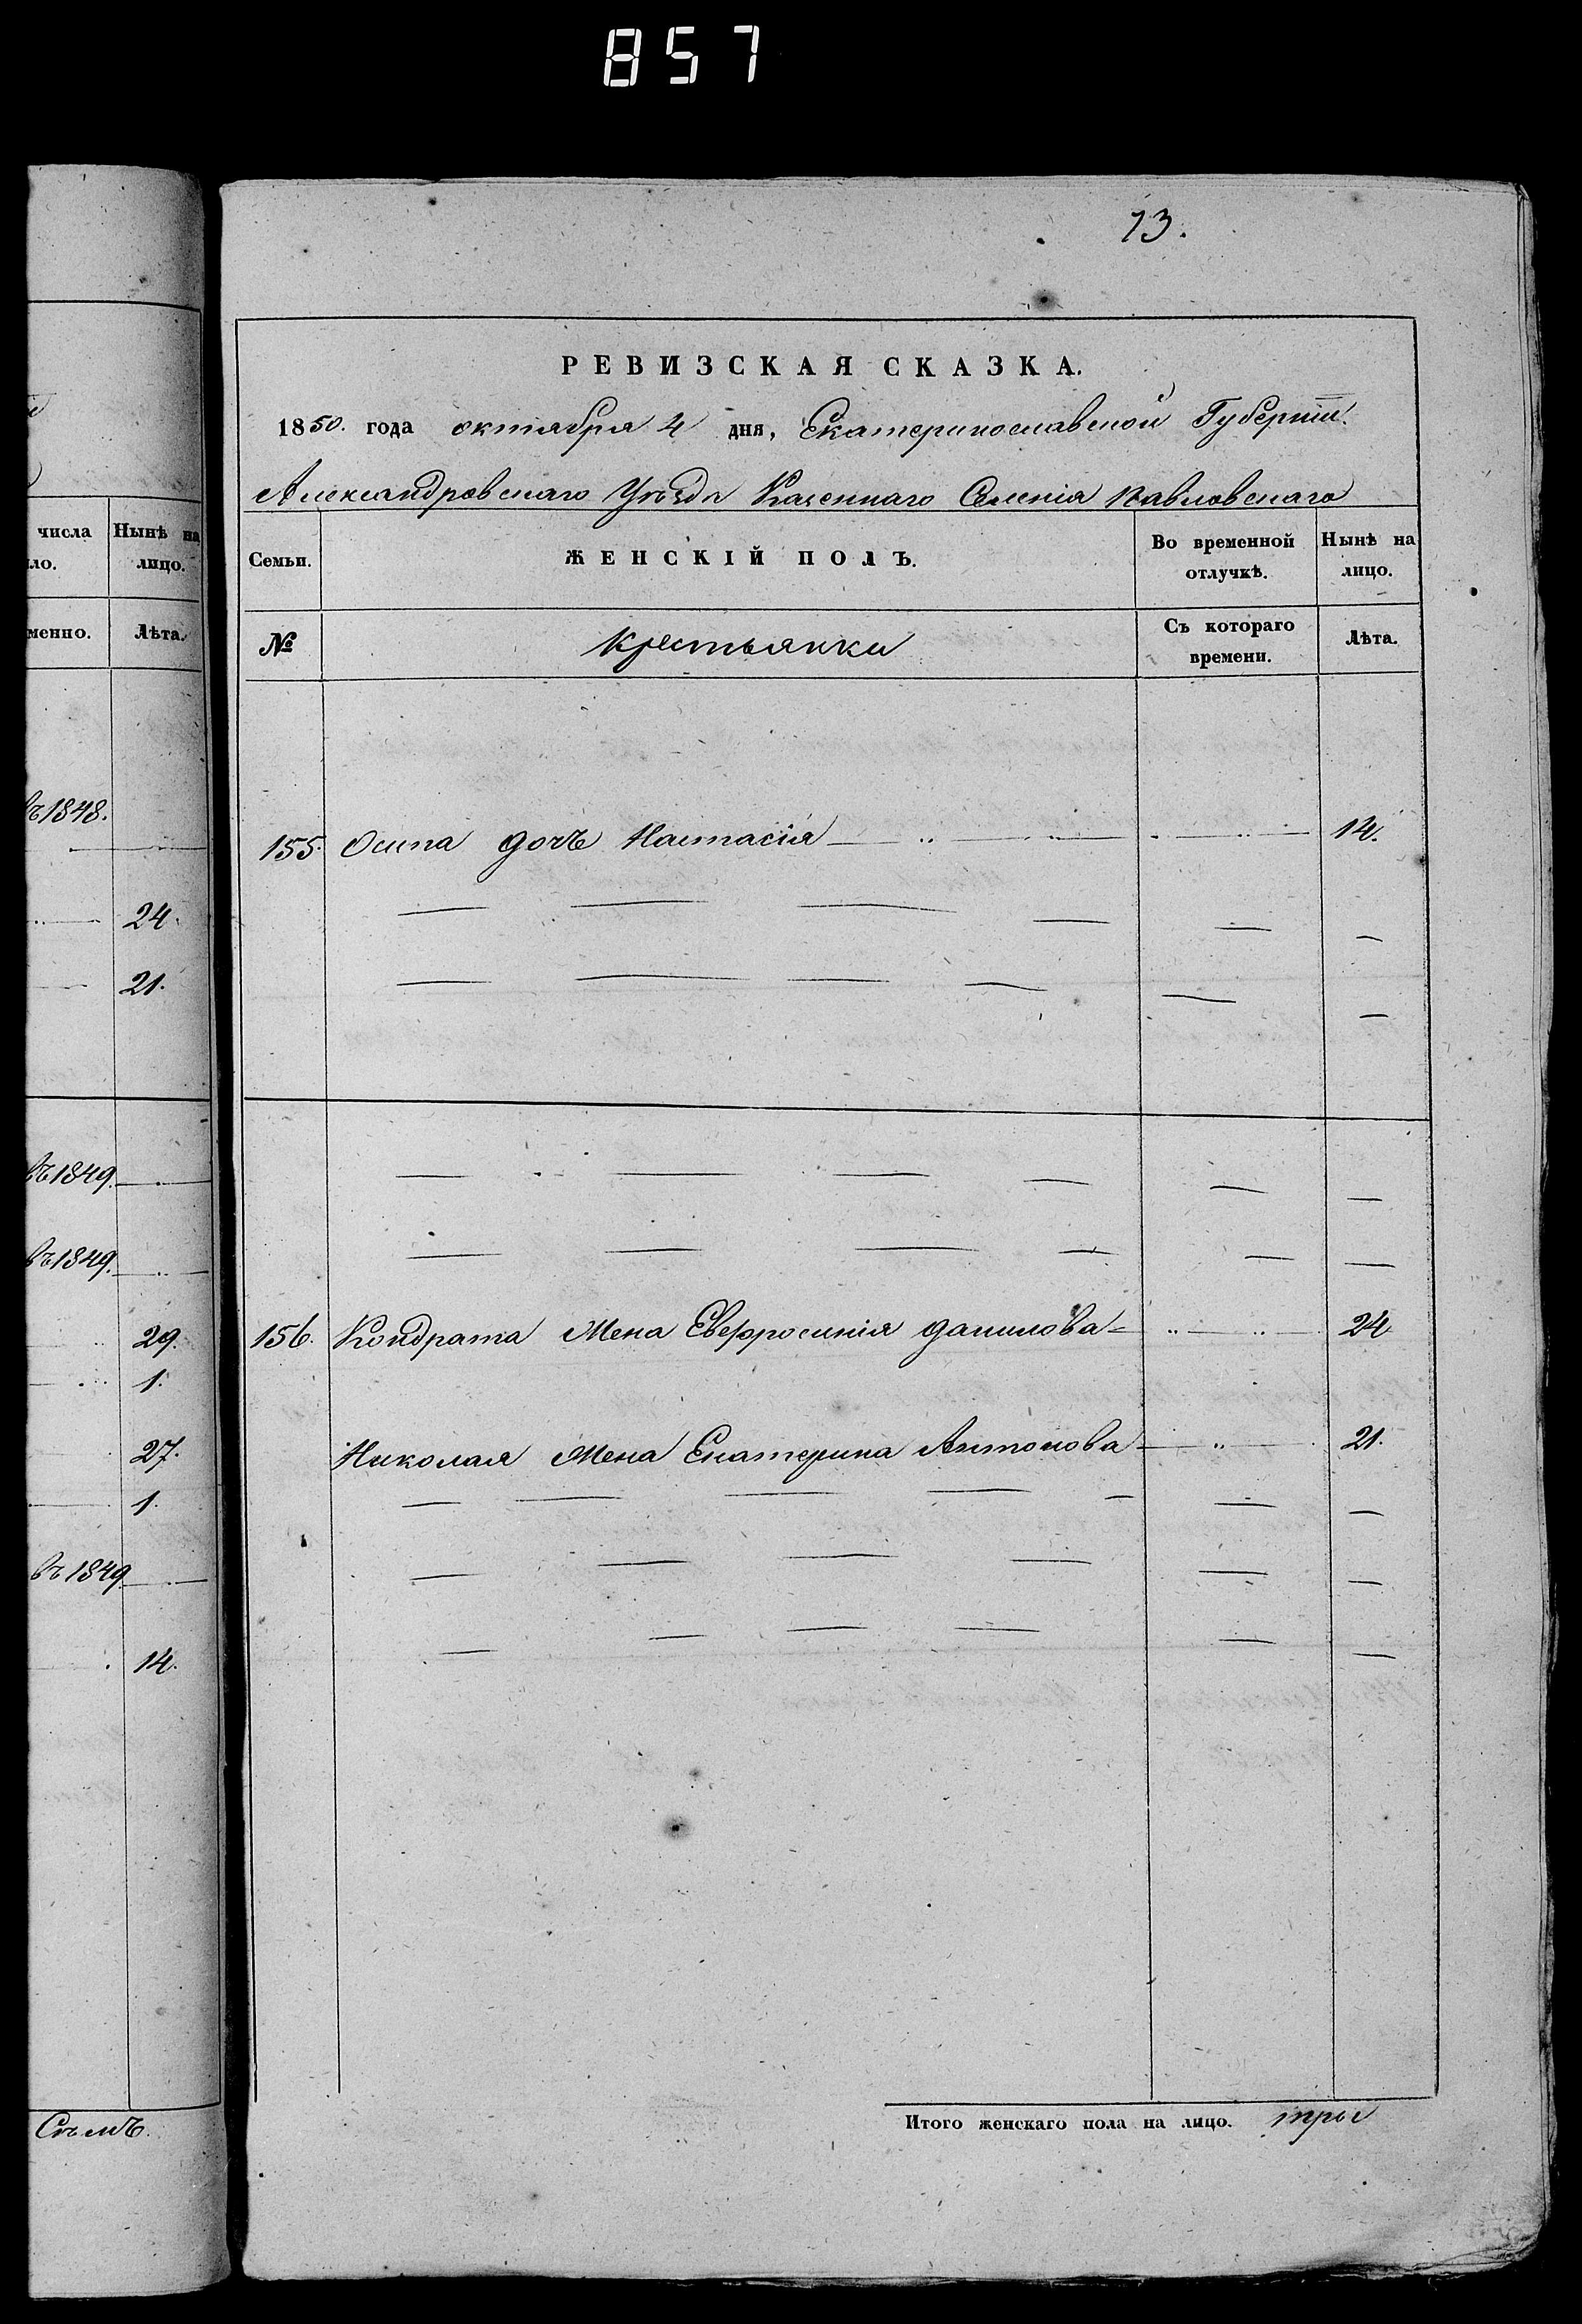 857
числа
ло.
Нынѣ на
лицо.
менно.
Лѣта.
въ 1848.
24.
21.
въ 1849.
въ 1849.
29.
1.
27.
1.
въ 1849
14.
73.
РЕВИЗСКАЯ СКАЗКА.
1850. года октября 4 дня, Екатеринославской Губерніи.
Александровскаго Уѣзда Казеннаго Селенія Павловскаго
Семьи.
ЖЕНСКІЙ ПОЛЪ.
Во временной
отлучкѣ.
Нынѣ на
лицо.
№
Крестьянки
Съ котораго
времени.
Лѣта.
155. Осипа дочь Настасія 14.
156. Кондрата Жена Евфросинія Данилова 24
Николая Жена Екатерина Антонова 21.
Итого женскаго пола на лицо. три